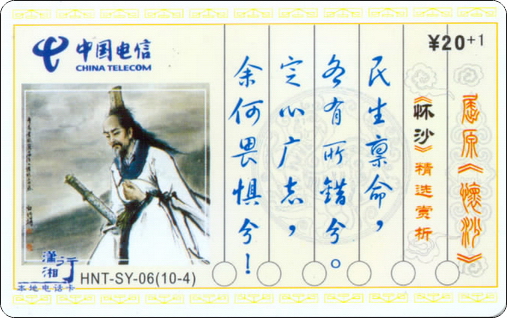 中国电信
CHINA TELECOM
¥20+1
屈原《懷沙》
《怀沙》精选赏析
民生禀命，
各有所错兮。
定心广志，
余何畏惧兮！
潇湘行
本地电话卡
HNT-SY-06(10-4)